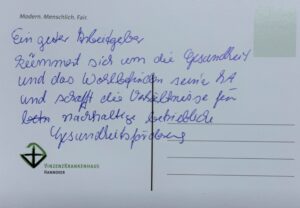 Modern. Menschlich. Fair.
Ein guter Arbeitgeber
kümmert sich um die Gesundheit
und das Wohlbefinden seine MA
und schafft die Verhältnisse für
nachhaltige betriebliche
Gesundheitsförderung
VINZENZKRANKENHAUS
HANNOVER